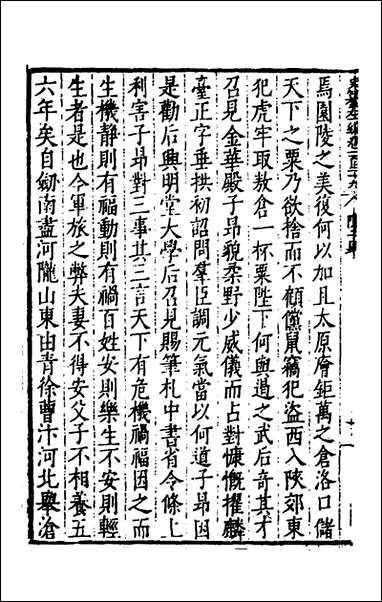 焉園陵之美復何以加且太原㢑鉅萬之倉洛口儲
天下之粟乃欲捨而不顧儻鼠竊犯盜西入陝郊東
犯虎牢取敖倉一杯粟陛下何與遏之武后奇其才
召見金華殿子昂貌柔野少威儀而占對慷慨擢麟
臺正字垂拱初詔問羣臣調元氣當以何道子昂因
是勸后興明堂大學后召見賜筆札中書省令條上
利害子昂對三事其三言天下有危機禍福因之而
生機静則有福動則有禍百姓安則樂生不安則輕
生者是也今軍旅之弊夫妻不得安父子不相養五
六年矣自劒南盡河隴山東由青徐曹汴河北舉滄